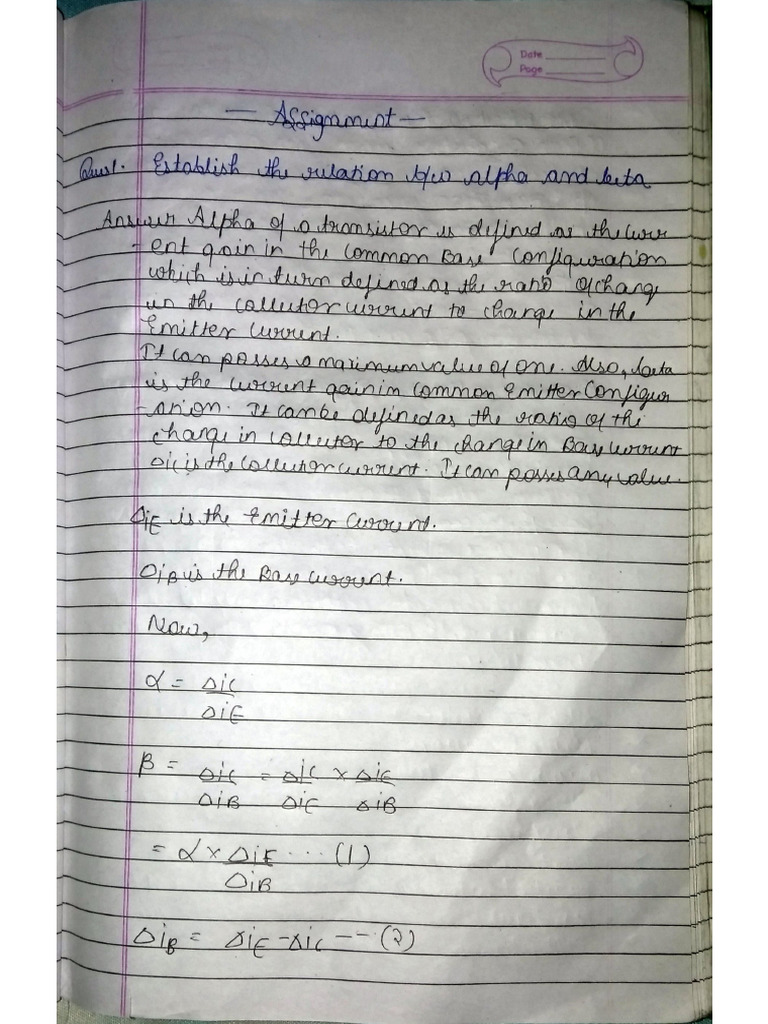 Date
Page
— Assignment —
Ques1. Establish the relation b/w alpha and beta
Answer Alpha of a transistor is defined as the curr
-ent gain in the Common Base Configuration
which is in turn defined as the ratio of change
in the collector current to change in the
Emitter Current.
It can posses a maximum value of one. Also, beta
is the current gain in common Emitter Configur
-ation. It can be defined as the ratio of the
change in collector to the change in Base current
Δic is the Collector current. It can posses any value.
ΔiE is the Emitter Current.
ΔiB is the Base current.
Now,
α = ΔiC
ΔiE
β = ΔiC = ΔiC × ΔiE
ΔiB ΔiE ΔiB
= α × ΔiE ... (1)
ΔiB
ΔiB = ΔiE - ΔiC -- (2)